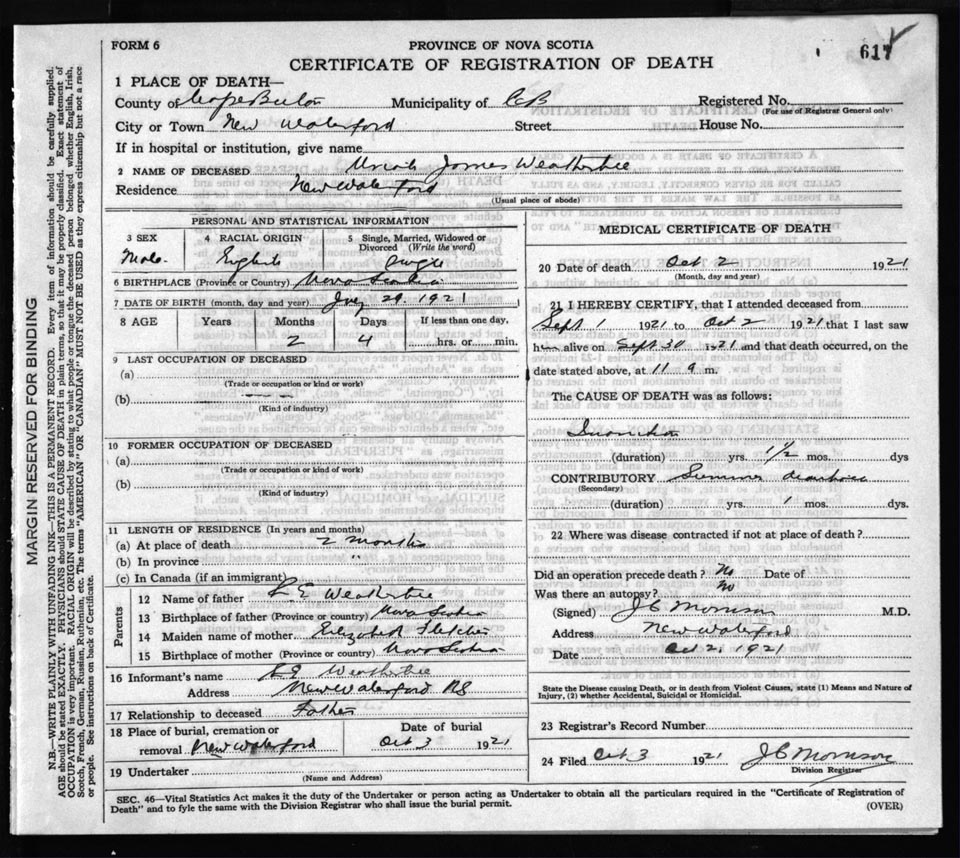 FORM 6
PROVINCE OF NOVA SCOTIA
617
CERTIFICATE OF REGISTRATION OF DEATH
1 PLACE OF DEATH—
County of Cape Breton Municipality of CB Registered No.
(For use of Registrar General only)
City or Town New Waterford Street House No.
If in hospital or institution, give name
2 NAME OF DECEASED Uriah James Weatherbee
Residence New Waterford
(Usual place of abode)
PERSONAL AND STATISTICAL INFORMATION
3 SEX 4 RACIAL ORIGIN 5 Single, Married, Widowed or Divorced (Write the word)
Male English Single
6 BIRTHPLACE (Province or Country) Nova Scotia
7 DATE OF BIRTH (month, day and year) 29 1921
8 AGE Years Months Days If less than one day,
2 4 hrs. or min.
9 LAST OCCUPATION OF DECEASED
(a)
(Trade or occupation or kind or work)
(b)
(Kind of industry)
10 FORMER OCCUPATION OF DECEASED
(a)
(Trade or occupation or kind or work)
(b)
(Kind of industry)
11 LENGTH OF RESIDENCE (In years and months)
(a) At place of death 2 months
(b) In province "
(c) In Canada (if an immigrant)
Parents
12 Name of father Weatherbee
13 Birthplace of father (Province or country) Nova Scotia
14 Maiden name of mother Elizabeth Fletcher
15 Birthplace of mother (Province or country) Nova Scotia
16 Informant's name Weatherbee
Address New Waterford NS
17 Relationship to deceased Father
18 Place of burial, cremation or removal New Waterford
Date of burial
Oct 3 1921
19 Undertaker
(Name and Address)
MEDICAL CERTIFICATE OF DEATH
20 Date of death Oct 2 1921
(Month, day and year)
21 I HEREBY CERTIFY, that I attended deceased from
Sept 1 1921 to Oct 2 1921 that I last saw
h alive on Sept 30 1921 and that death occurred, on the
date stated above, at 11 a m.
The CAUSE OF DEATH was as follows:
Inanition
(duration) yrs. 1 1/2 mos. dys
CONTRIBUTORY Summer diarrhoea
(Secondary)
(duration) yrs. 1 mos. dys.
22 Where was disease contracted if not at place of death?
Did an operation precede death? No Date of
Was there an autopsy? No
(Signed) J C Morrison M.D.
Address New Waterford
Date Oct 2, 1921
State the Disease causing Death, or in death from Violent Causes, state (1) Means and Nature of Injury, (2) whether Accidental, Suicidal or Homicidal.
23 Registrar's Record Number
24 Filed Oct 3 1921 J C Morrison
Division Registrar
SEC. 46—Vital Statistics Act makes it the duty of the Undertaker or person acting as Undertaker to obtain all the particulars required in the "Certificate of Registration of
Death" and to fyle the same with the Division Registrar who shall issue the burial permit. (OVER)
MARGIN RESERVED FOR BINDING
N.B.—WRITE PLAINLY WITH UNFADING INK—THIS IS A PERMANENT RECORD. Every item of information should be carefully supplied.
AGE should be stated EXACTLY. PHYSICIANS should STATE CAUSE OF DEATH in plain terms, so that it may be properly classified. Exact statement of
OCCUPATION is very important. RACIAL ORIGIN will be described by stating to what people or tongue the deceased person belonged whether English, Irish,
Scotch, French, German, Russian, Ruthenian, etc. The terms "AMERICAN OR "CANADIAN" MUST NOT BE USED as they express citizenship but not a race
or people. See instructions on back of Certificate.